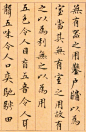 無有器之用鑿戶牖以為
室當其無有室之用故有
之以為利無之以為用
五色令人目盲五音令人耳
聾五味令人口爽馳騁田